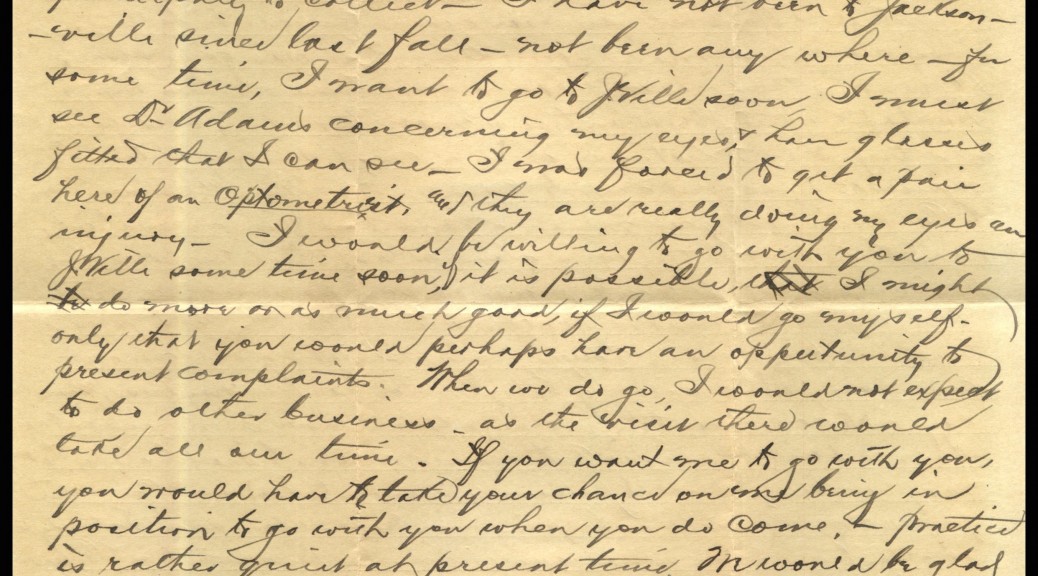 to collect – I have not been to Jackson–
–ville since last fall – not been any where – for
some time, I want to go to J'Ville soon, I must
see Dr Adams concerning my eyes, & have glasses
fitted that I can see – I was forced to get a pair
here of an Optometrist, and they are really doing my eyes an
injury – I would be willing to go with you to
J'Ville some time soon, it is possible, I might
do more or as much good, if I would go myself –
only that you would perhaps have an oppertunity to
present complaints. When we do go, I would not expect
to do other business – as the visit there would
take all our time. If you want me to go with you,
you would have to take your chance on me being in
position to go with you when you do come, – practice
is rather quiet at present time, M would be glad